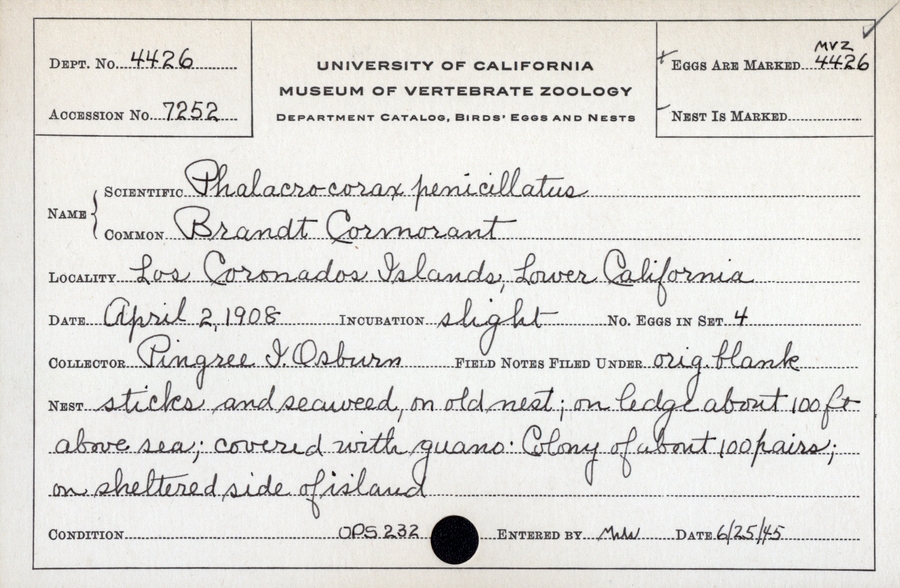 Dept. No. 4426
Accession No. 7252
UNIVERSITY OF CALIFORNIA
MUSEUM OF VERTEBRATE ZOOLOGY
Department Catalog, Birds' Eggs and Nests
MVZ
Eggs Are Marked 4426
Nest Is Marked
Name
Scientific Phalacrocorax penicillatus
Common Brandt Cormorant
Locality Los Coronados Islands, Lower California
Date April 2, 1908 Incubation slight No. Eggs in Set 4
Collector Pingree I. Osburn Field Notes Filed Under orig. blank
Nest sticks and seaweed, on old nest; on ledge about 100 ft
above sea; covered with guano: Colony of about 100 pairs;
on sheltered side of island
Condition OPS 232 Entered by Date 6/25/45